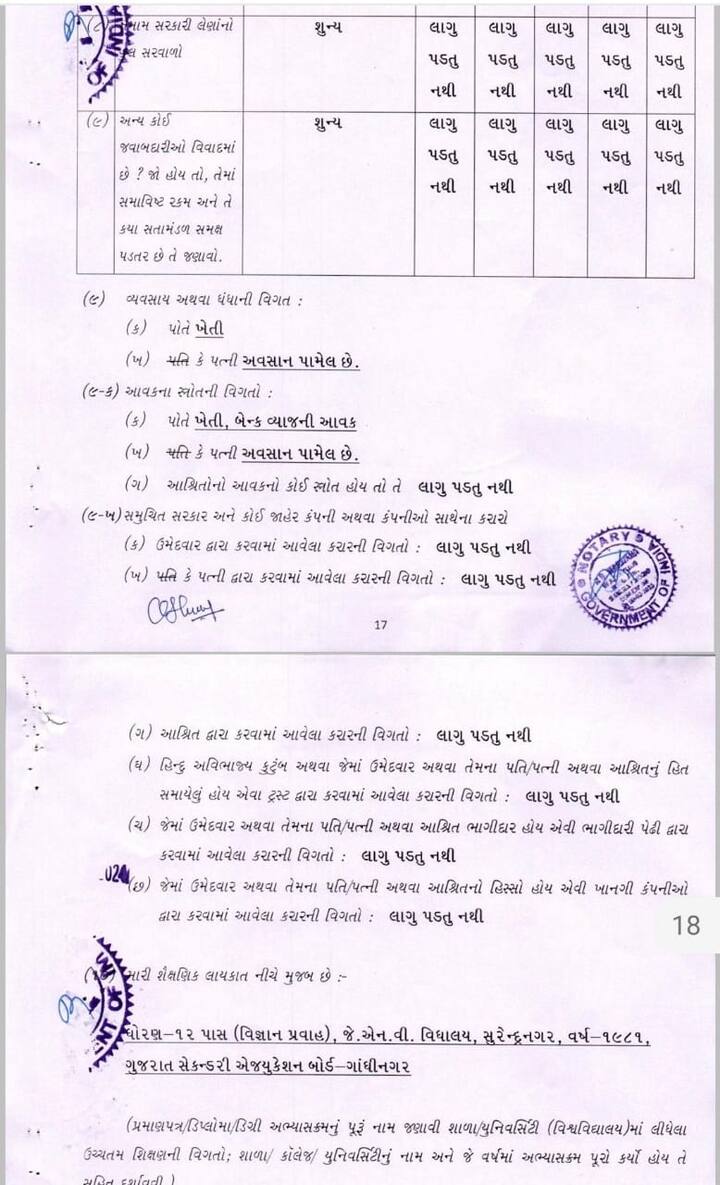 (૮) તમામ સરકારી લેણાંનો શુન્ય લાગુ લાગુ લાગુ લાગુ લાગુ
કુલ સરવાળો પડતુ પડતુ પડતુ પડતુ પડતુ
નથી નથી નથી નથી નથી
(૯) અન્ય કોઈ શુન્ય લાગુ લાગુ લાગુ લાગુ લાગુ
જવાબદારીઓ વિવાદમાં પડતુ પડતુ પડતુ પડતુ પડતુ
છે ? જો હોય તો, તેમાં નથી નથી નથી નથી નથી
સમાવિષ્ટ રકમ અને તે
કયા સતામંડળ સમક્ષ
પડતર છે તે જણાવો.
(૯) વ્યવસાય અથવા ધંધાની વિગત :
(ક) પોતે ખેતી
(ખ) પતિ કે પત્ની અવસાન પામેલ છે.
(૯-ક) આવકના સ્ત્રોતની વિગતો :
(ક) પોતે ખેતી, બેન્ક વ્યાજની આવક
(ખ) પતિ કે પત્ની અવસાન પામેલ છે.
(ગ) આશ્રિતોનો આવકનો કોઈ સ્ત્રોત હોય તો તે લાગુ પડતુ નથી
(૯-ખ) સમુચિત સરકાર અને કોઈ જાહેર કંપની અથવા કંપનીઓ સાથેના કરારો
(ક) ઉમેદવાર દ્વારા કરવામાં આવેલા કરારની વિગતો : લાગુ પડતુ નથી
(ખ) પતિ કે પત્ની દ્વારા કરવામાં આવેલા કરારની વિગતો : લાગુ પડતુ નથી
NOTARY
GOVERNMENT OF INDIA
17
(ગ) આશ્રિત દ્વારા કરવામાં આવેલા કરારની વિગતો : લાગુ પડતુ નથી
(ઘ) હિન્દુ અવિભાજ્ય કુટુંબ અથવા જેમાં ઉમેદવાર અથવા તેમના પતિ/પત્ની અથવા આશ્રિતનું હિત
સમાયેલું હોય એવા ટ્રસ્ટ દ્વારા કરવામાં આવેલા કરારની વિગતો : લાગુ પડતુ નથી
(ચ) જેમાં ઉમેદવાર અથવા તેમના પતિ/પત્ની અથવા આશ્રિત ભાગીદાર હોય એવી ભાગીદારી પેઢી દ્વારા
કરવામાં આવેલા કરારની વિગતો : લાગુ પડતુ નથી
(છ) જેમાં ઉમેદવાર અથવા તેમના પતિ/પત્ની અથવા આશ્રિતનો હિસ્સો હોય એવી ખાનગી કંપનીઓ
દ્વારા કરવામાં આવેલા કરારની વિગતો : લાગુ પડતુ નથી
18
(૧૦) મારી શૈક્ષણિક લાયકાત નીચે મુજબ છે :-
ધોરણ-૧૨ પાસ (વિજ્ઞાન પ્રવાહ), જે.એન.વી. વિધાલય, સુરેન્દ્રનગર, વર્ષ-૧૯૮૧,
ગુજરાત સેકન્ડરી એજયુકેશન બોર્ડ-ગાંધીનગર
(પ્રમાણપત્ર/ડિપ્લોમા/ડિગ્રી અભ્યાસક્રમનું પૂરૂં નામ જણાવી શાળા/યુનિવર્સિટી (વિશ્વવિદ્યાલય)માં લીધેલા
ઉચ્ચતમ શિક્ષણની વિગતો; શાળા/ કૉલેજ/ યુનિવર્સિટીનું નામ અને જે વર્ષમાં અભ્યાસક્રમ પૂરો કર્યો હોય તે
સહિત દર્શાવવી.)